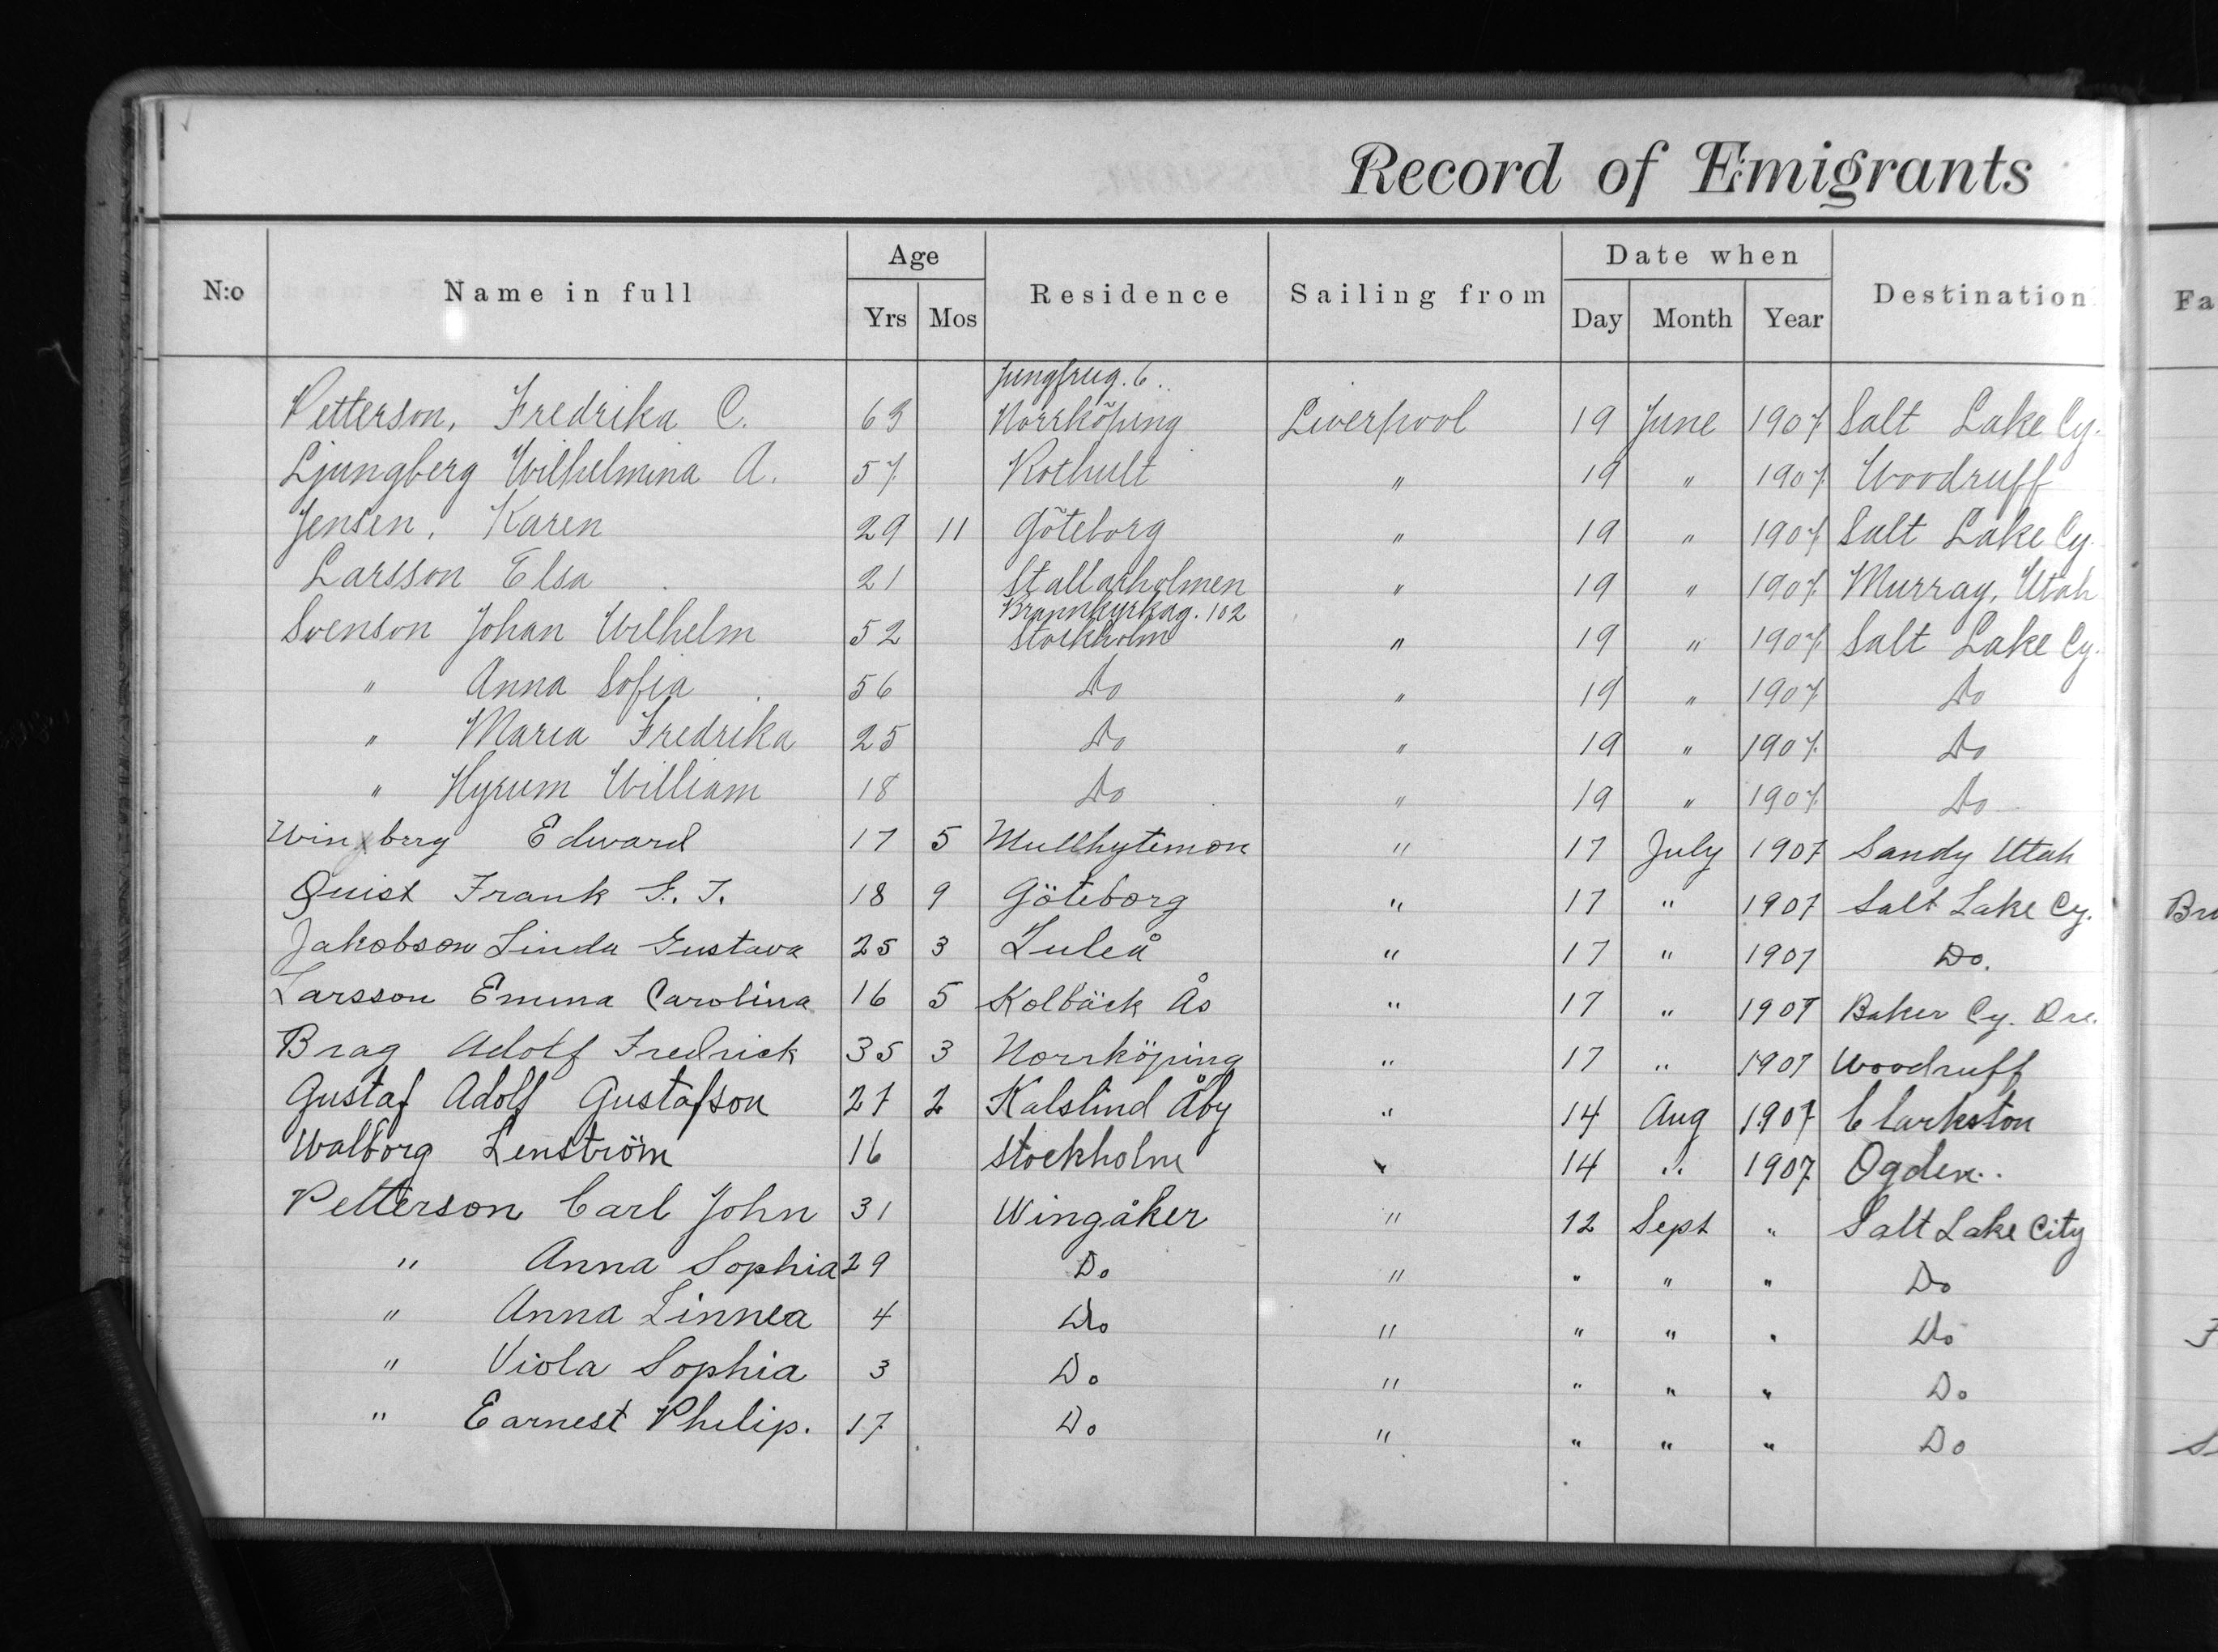 Record of Emigrants
Age Date when
N:o Name in full Residence Sailing from Destination Fa
Yrs Mos Day Month Year
Jungfrug. 6.
Petterson, Fredrika C. 63 Norrköping Liverpool 19 June 1907 Salt Lake Cy.
Ljungberg Wilhelmina A. 57 Rothult " 19 " 1907 Woodruff
Jensen, Karen 29 11 Göteborg " 19 " 1907 Salt Lake Cy.
Larsson Elsa 21 Stallarholmen " 19 " 1907 Murray, Utah
Brannkyrkag. 102
Svenson Johan Wilhelm 52 Stockholm " 19 " 1907 Salt Lake Cy.
" Anna Sofia 56 Do " 19 " 1907 Do
" Maria Fredrika 25 Do " 19 " 1907 Do
" Hyrum William 18 Do " 19 " 1907 Do
Edward 17 5 Mullhytemon " 17 July 1907 Sandy Utah
Quist Frank G. T. 18 9 Göteborg " 17 " 1907 Salt Lake Cy.
Jakobson Linda Gustava 25 3 Luleå " 17 " 1907 Do.
Larsson Emma Carolina 16 5 Kolbäck Ås " 17 " 1907 Baker Cy. Ore.
Brag Adolf Fredrick 35 3 Norrköping " 17 " 1907 Woodruff
Gustaf Adolf Gustafson 27 2 Kalslind Åby " 14 Aug 1907 Clarkston
Walborg Lenström 16 Stockholm " 14 " 1907 Ogden.
Petterson Carl John 31 Wingåker " 12 Sept " Salt Lake City
" Anna Sophia 29 Do " " " " Do
" Anna Linnea 4 Do " " " " Do
" Viola Sophia 3 Do " " " " Do
" Earnest Philip. 17 Do " " " " Do